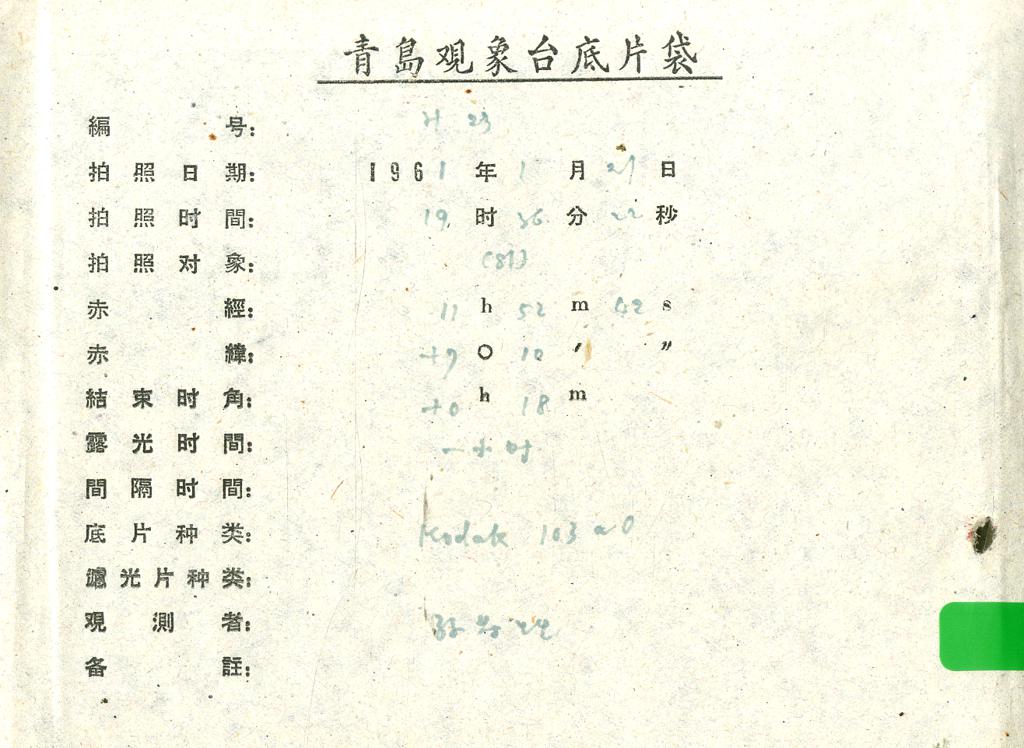 青島观象台底片袋
編号: H 23
拍照日期: 1961年1月21日
拍照时間: 19时36分22秒
拍照对象: (81)
赤經: 11 h 52 m 42 s
赤緯: +9 ° 10 ′ ″
結束时角: +0 h 18 m
露光时間: 一小时
間隔时間:
底片种类: Kodak 103 a0
濾光片种类:
观測者:
备註: